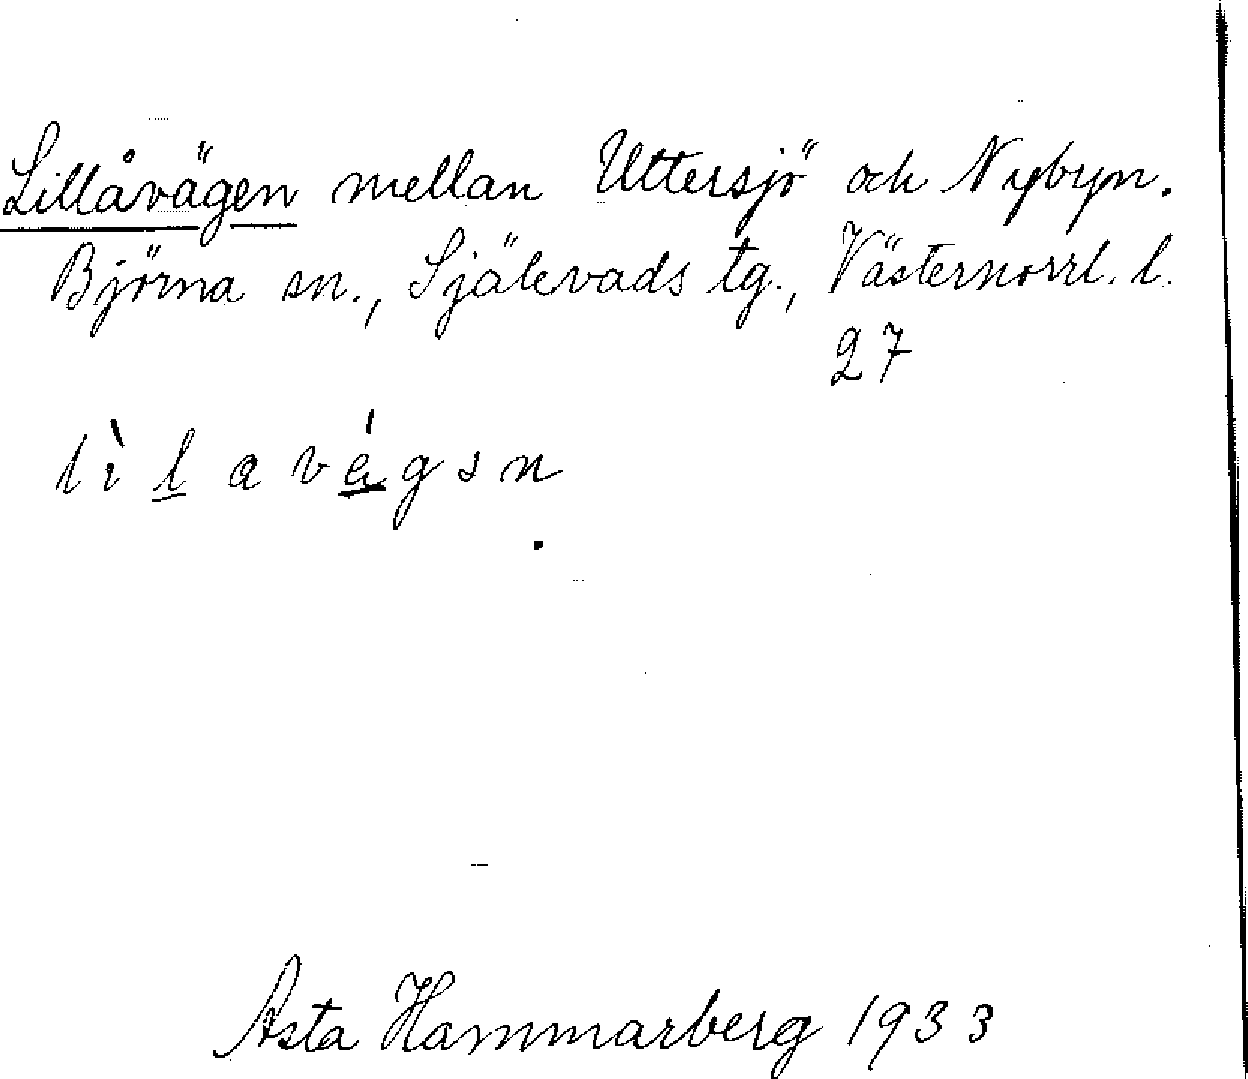 Lillåvägen mellan Uttersjö och Nybyn.
Björna sn., Själevads tg., Västernorrl. l.
27
lìlavä́gən
Asta Hammarberg 1933